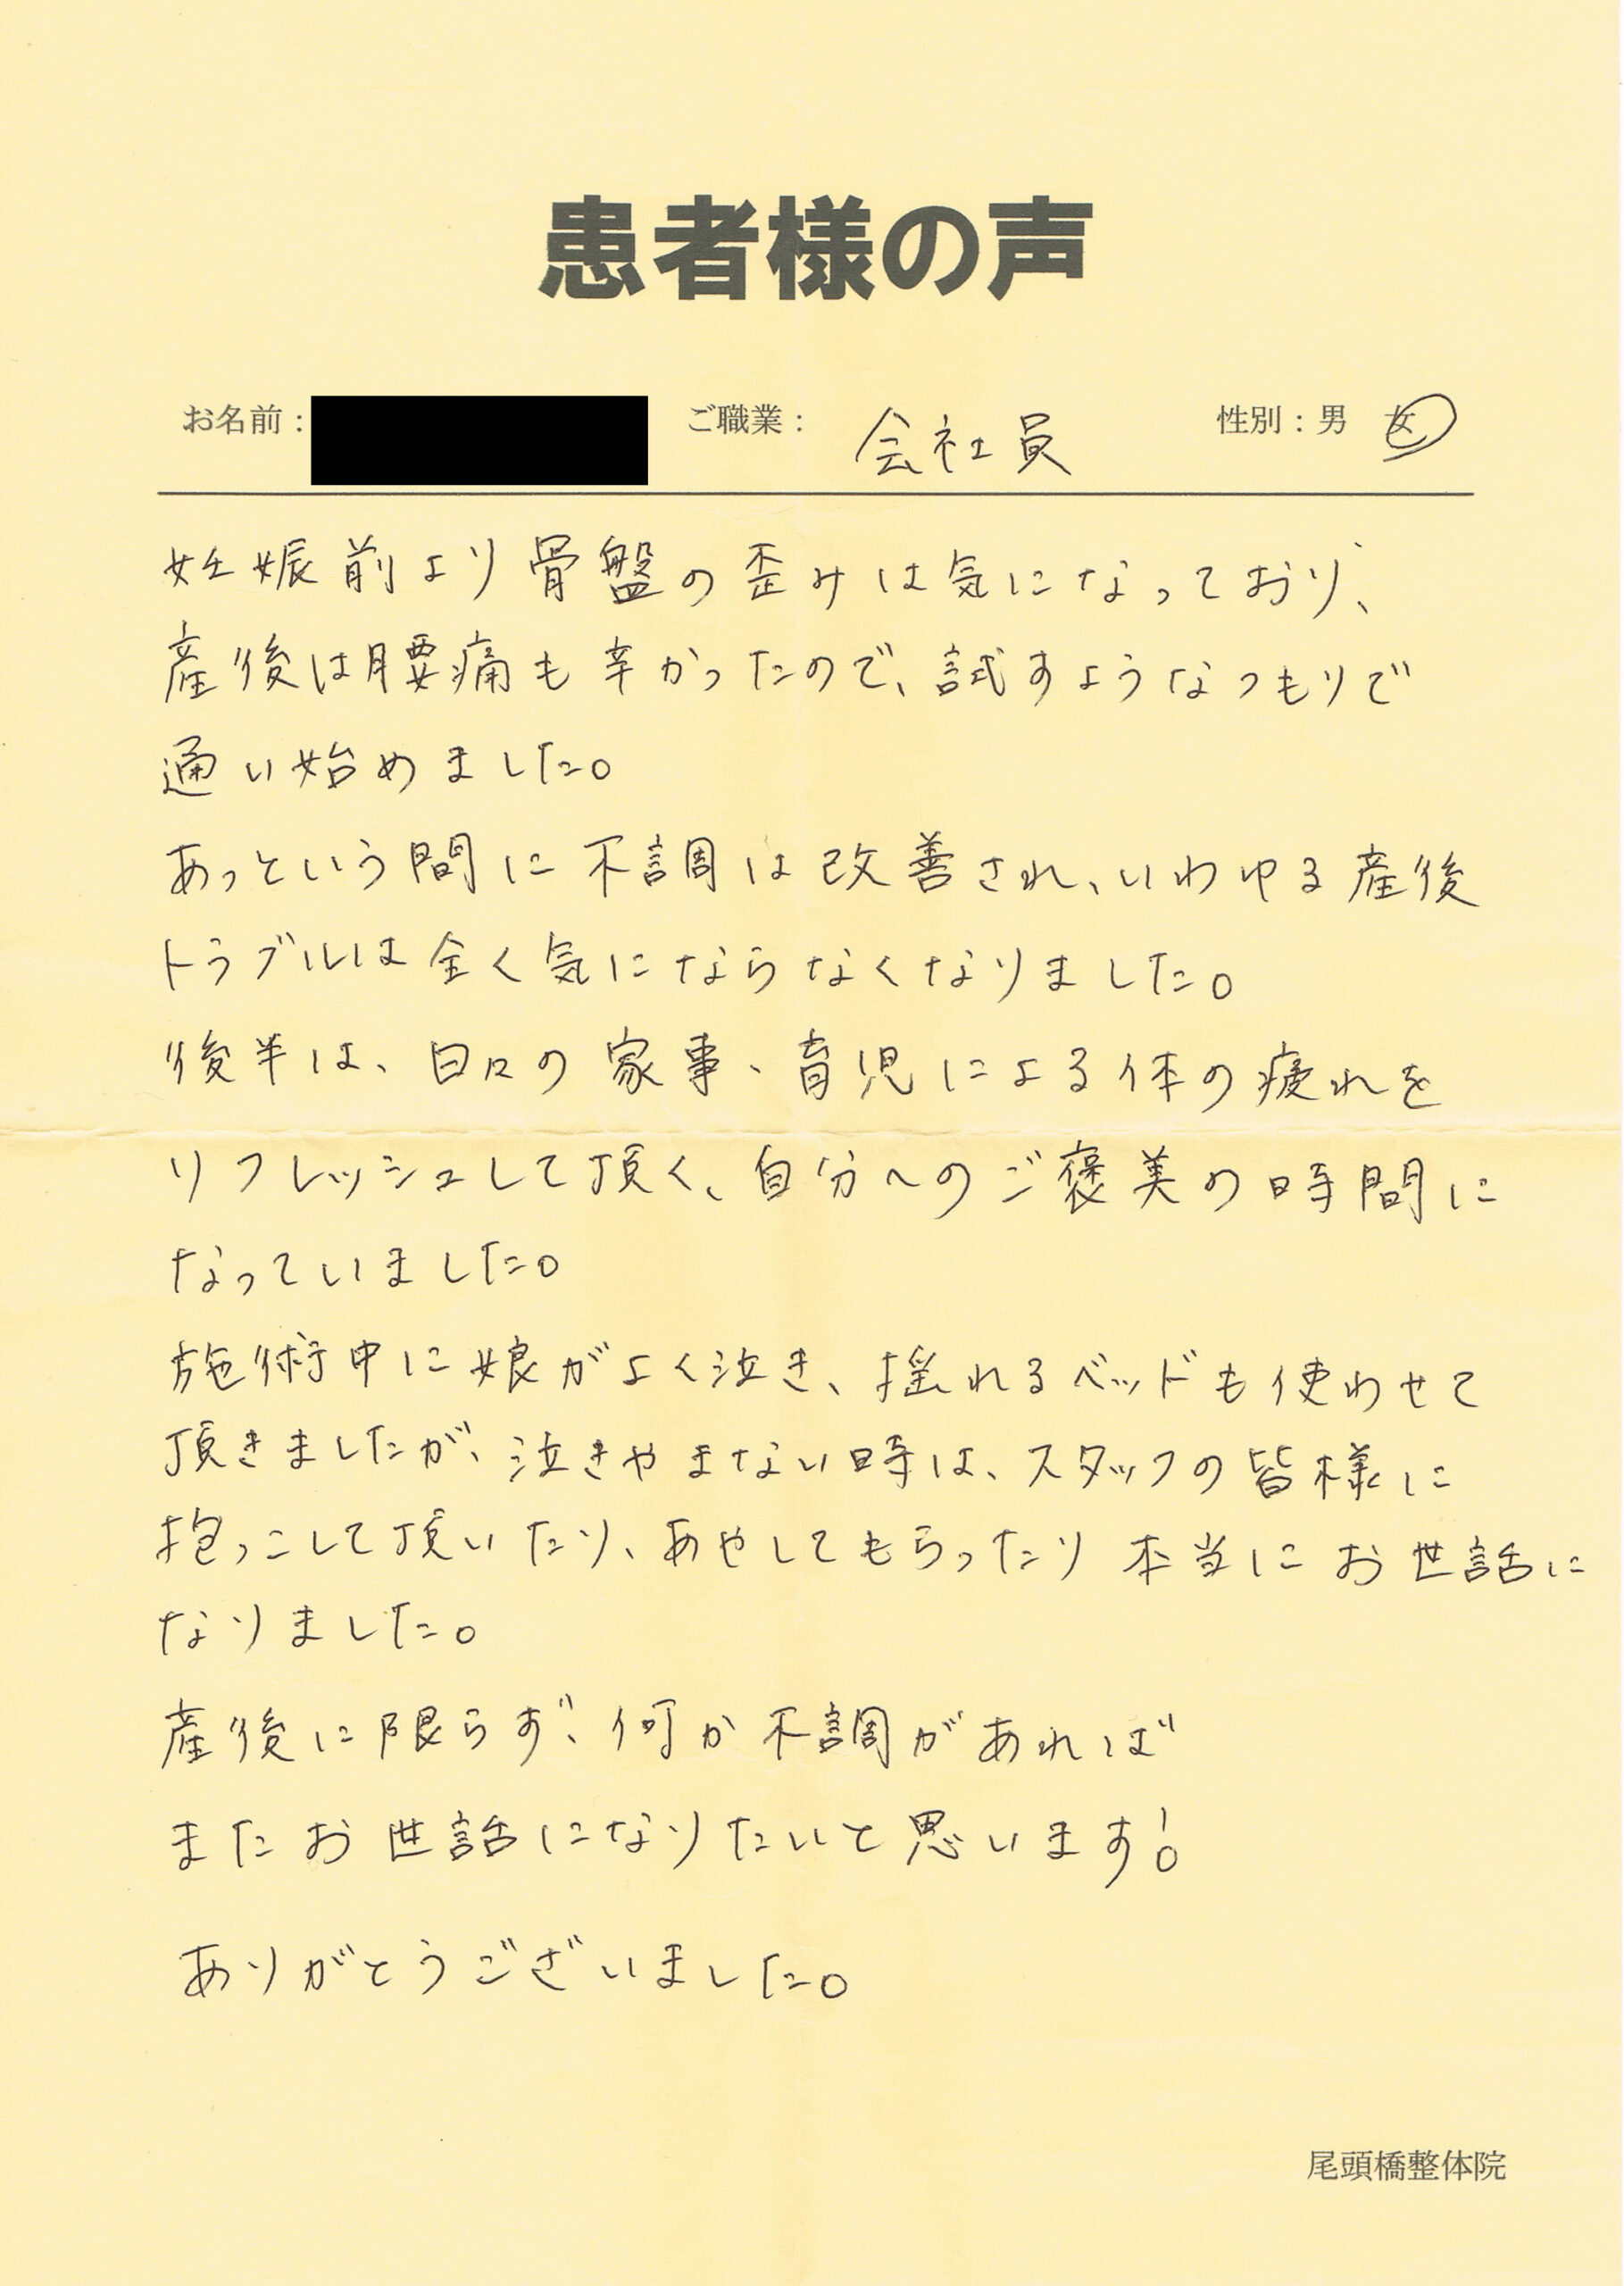 患者様の声
お名前： ご職業： 会社員 性別：男 女
妊娠前より骨盤の歪みは気になっており、
産後は腰痛も辛かったので、試すようなつもりで
通い始めました。
あっという間に不調は改善され、いわゆる産後
トラブルは全く気にならなくなりました。
後半は、日々の家事、育児による体の疲れを
リフレッシュして頂く、自分へのご褒美の時間に
なっていました。
施術中に娘がよく泣き、揺れるベッドも使わせて
頂きましたが、泣きやまない時は、スタッフの皆様に
抱っこして頂いたり、あやしてもらったり本当にお世話に
なりました。
産後に限らず、何か不調があれば
またお世話になりたいと思います!
ありがとうございました。
尾頭橋整体院